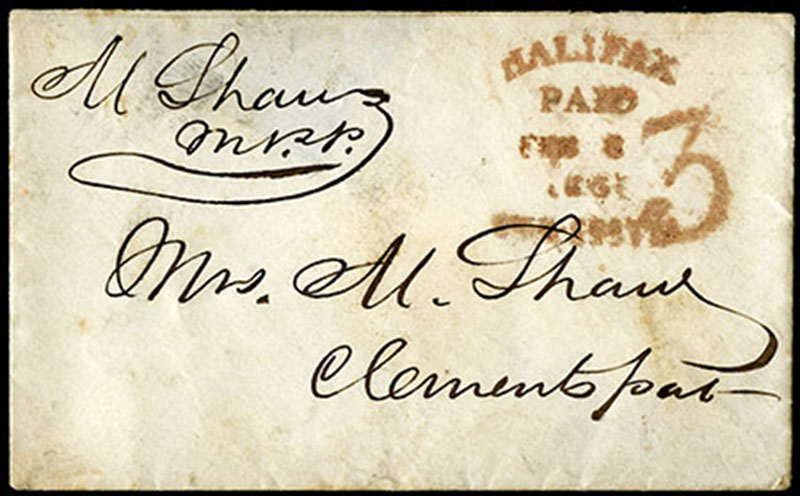 M Shaw
M.P.P.
HALIFAX
PAID
FEB 8
3
Mrs. M. Shaw
Clementsport